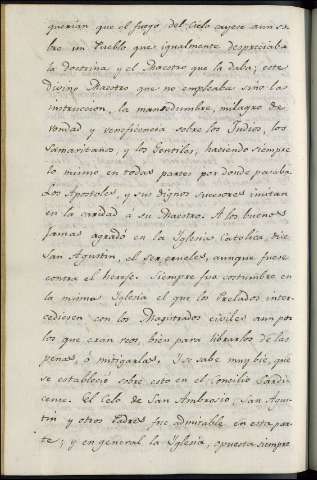 querian que el fuego del Cielo cayese aun so-
bre un Pueblo que igualmente despreciaba
la doctrina y el Maestro que la daba; este
divino Maestro que no empleaba sino las
instruccion, la mansedumbre, milagro de
bondad y beneficencia sobre los Judios, los
Samaritanos, y los Gentiles, haciendo siempre
lo mismo en todas partes por donde pasaba.
Los Apostoles, y sus dignos sucesores imitan
en la caridad a su Maestro. A los buenos
jamás agradó en la Iglesia Catolica, dice
San Agustin, el ser crueles, aunque fuese
contra el herege. Siempre fue costumbre en
la misma Iglesia el que los Prelados inter-
cediesen con los Magistrados civiles aun por
los que eran reos, bien para librarlos de las
penas, ó mitigarlas. Y se sabe muy bie, que
se estableció sobre esto en el Concilio Sardi-
cense. El Celo de San Ambrosio, San Agus-
tin y otros Padres fue admirable en esta par-
te; y en general la Iglesia, opuesta siempre